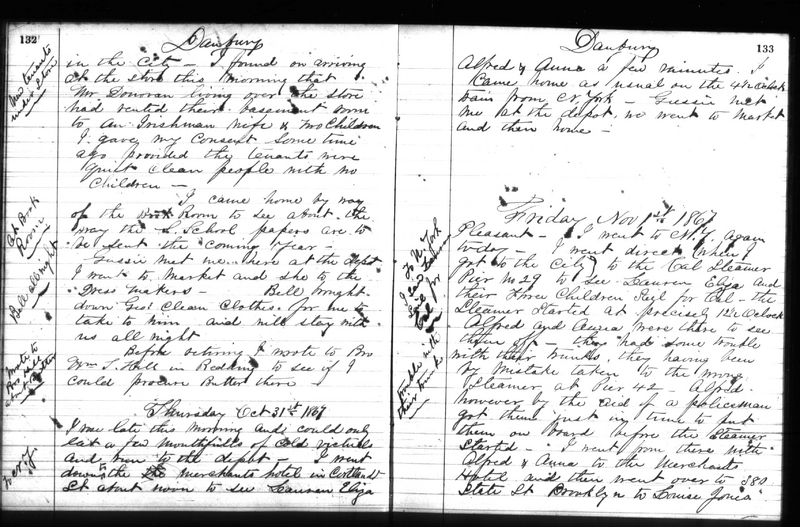 132
Danbury
New tenants
under Store
in the City - I found on arriving
at the store this morning that
Mr Donovan living over the store
had rented their basement room
to an Irishman Wife & two Children
I gave my Consent some time
ago provided the tenants were
quiet clean people with no
Children -
At Book
Room
I came home by way
of the Book Room to see about the
way the S. School papers are to
be sent the coming year -
Bell all night
Gussie met me here at the depot
I went to market and she to the
Dress makers - Bell brought
down Geo' Clean Clothes for me to
take to him and will stay with
us all night
Wrote to
Hill
about Butter
Before retiring I wrote to Bro
Wm S. Hill in Redding to see if I
could procure Butter there
Thursday Oct 31st 1867
to N.Y.
I was late this morning and could only
eat a few mouthfuls of cold victuals
and run to the depot - I went
down to the Merchants Hotel in Cortlandt
St about noon to see Lauren Eliza
133
Danbury
Alfred & Anna a few minutes. I
Came home as usual on the 4½ Oclock
train from N York - Gussie met
me at the depot, we went to market
and then home -
Friday Nov 1st 1867
To N. York
Sail for
Cal
Pleasant - I went to N.Y. again
today - I went direct when I
got to the City to the Cal Steamer
Pier No 29 to see Lauren Eliza and
their three Children Sail for Cal - the
Steamer Started at precisely 12½ Oclock
Alfred and Anna were there to see
them off - they had some trouble
trouble with
their trunks
with their trunks, they having been
by mistake taken to the wrong
Steamer at Pier 42 - Alfred
however by the aid of a policeman
got them just in time to put
them on board before the Steamer
Started - I went from there with
Alfred & Anna to the Merchants
Hotel and then went over to 380
State St Brooklyn to Louise Jonia